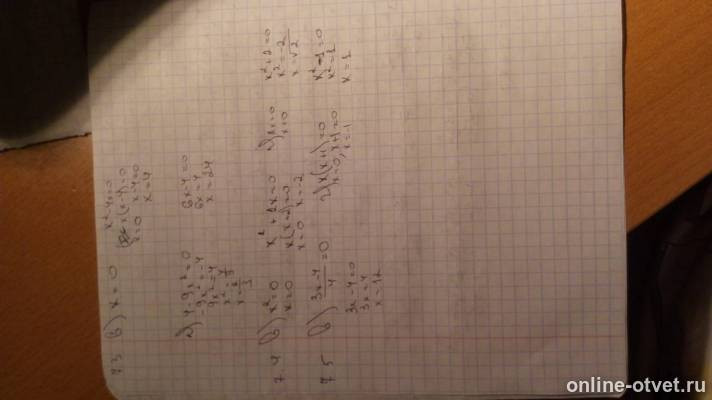 7.3 в) x = 0
x² - 4x = 0
x(x-4)=0
x=0 x-4=0
x=4
г) 4-9x²=0
-9x²=-4
9x²=4
6x-4=0
6x=4
x=24
7.4 в) x²=0
x=0
x² + 2x=0
x(x+2)=0
x=0 x=-2
x=0
x²+2=0
x²=-2
x=√2
7.5 в) 3x-4/4 =0
3x-4=0
3x=4
x=12
г) x(x+1)=0
x=0, x+1=0
x=-1
x²-1=0
x²=1
x=1
online-otvet.ru